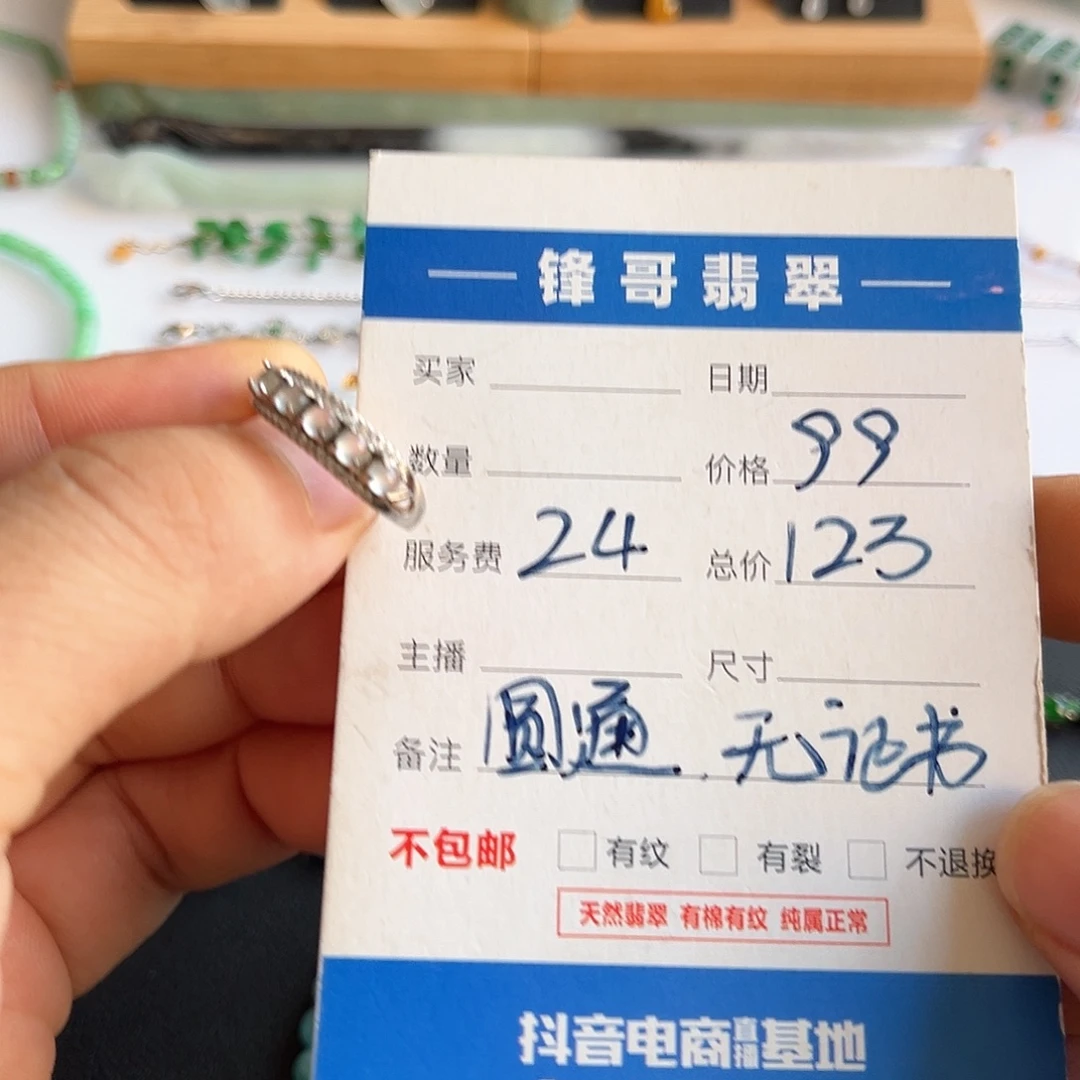 锋哥翡翠
买家 日期
数量 价格 99
服务费 24 总价 123
主播 尺寸
备注 圆通 无证书
不包邮 有纹 有裂 不退换
天然翡翠 有棉有纹 纯属正常
抖音电商直播基地